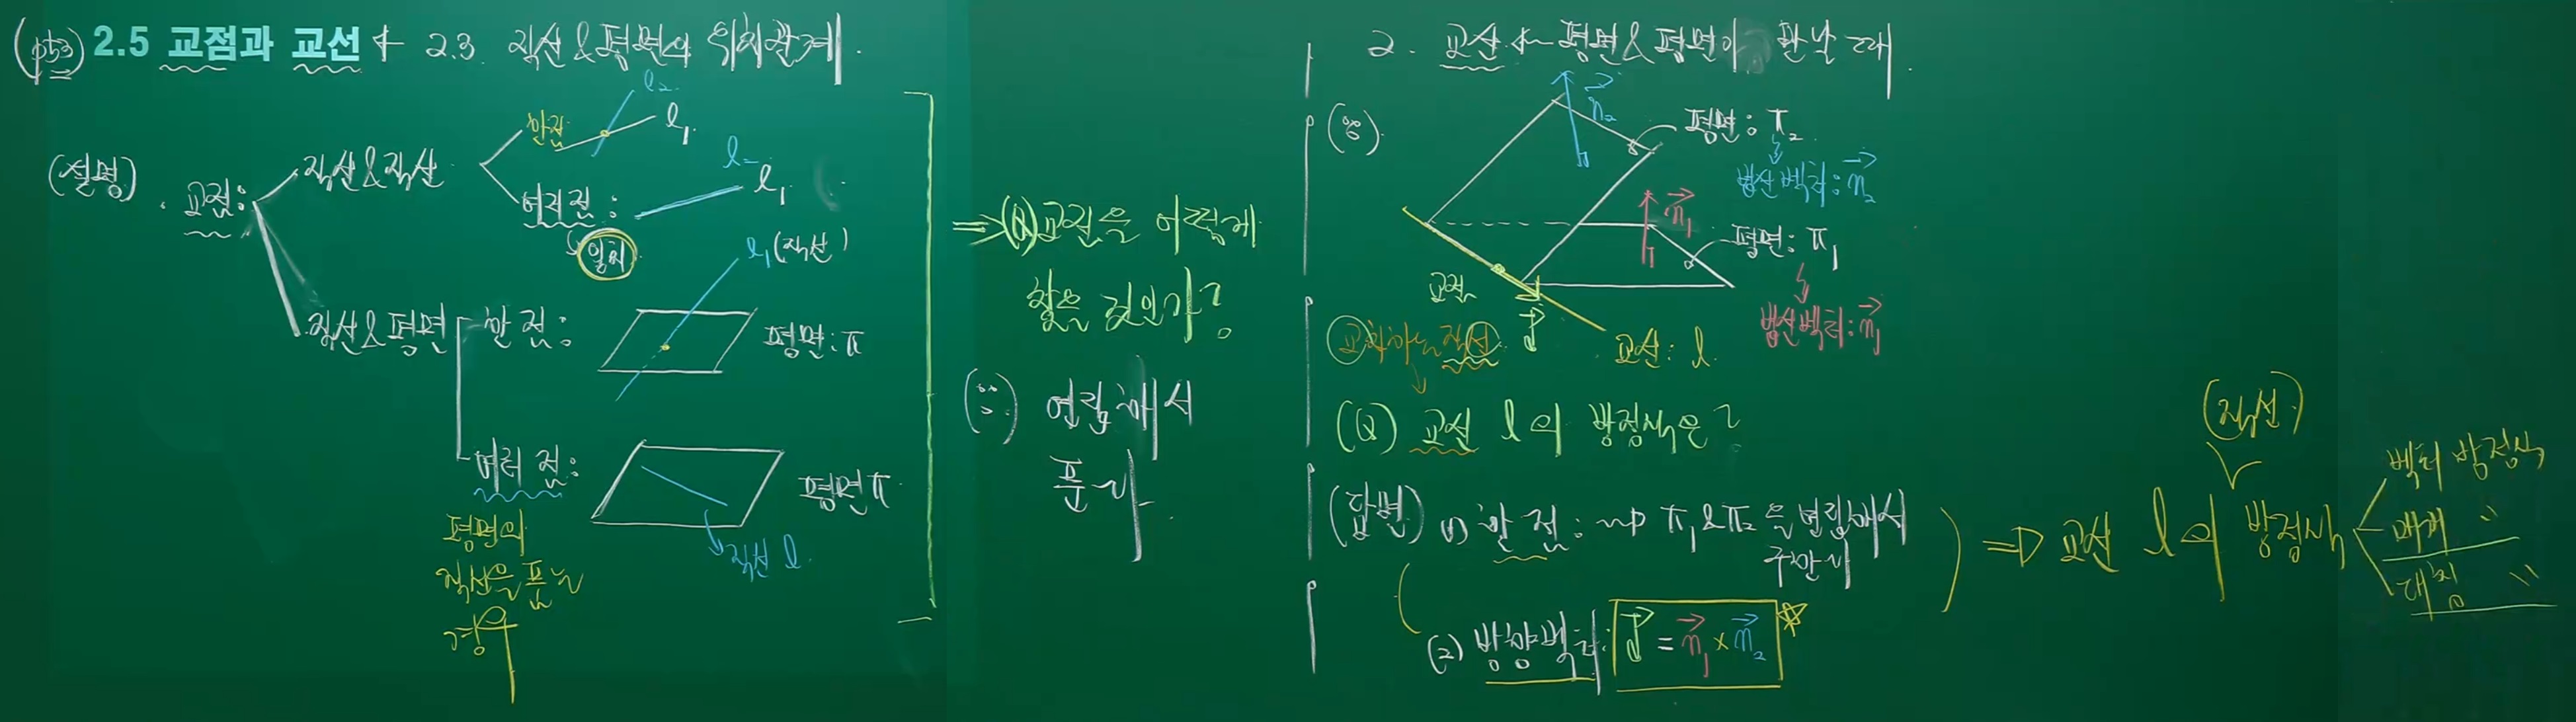 (p53) 2.5 교점과 교선 + 2.3. 직선&평면의 위치관계.
(설명) . 교점:
직선&직선
한점
l₂
l₁
여러점:
l₂
l₁
일치
직선&평면
한 점:
l₁ (직선)
평면: π
여러 점:
평면 π
직선 l.
평면이
직선을 품는
경우
⇒ (Q) 교점을 어떻게
찾을 것인가?
(∵) 연립해서
푼다.
2. 교선 ← 평면&평면이 만날 때.
n₂
평면: π₂
법선벡터: n₂
n₁
평면: π₁
법선벡터: n₁
교점
d
교선: l.
교차하는 직선
(Q) 교선 l의 방정식은?
(답변) (1) 한 점: ⇝ π₁&π₂ 을 연립해서
(2) 방향벡터: d = n₁ × n₂ ☆
⇒ 교선 l의 방정식
(직선)
벡터 방정식
매개 〃
대칭 〃